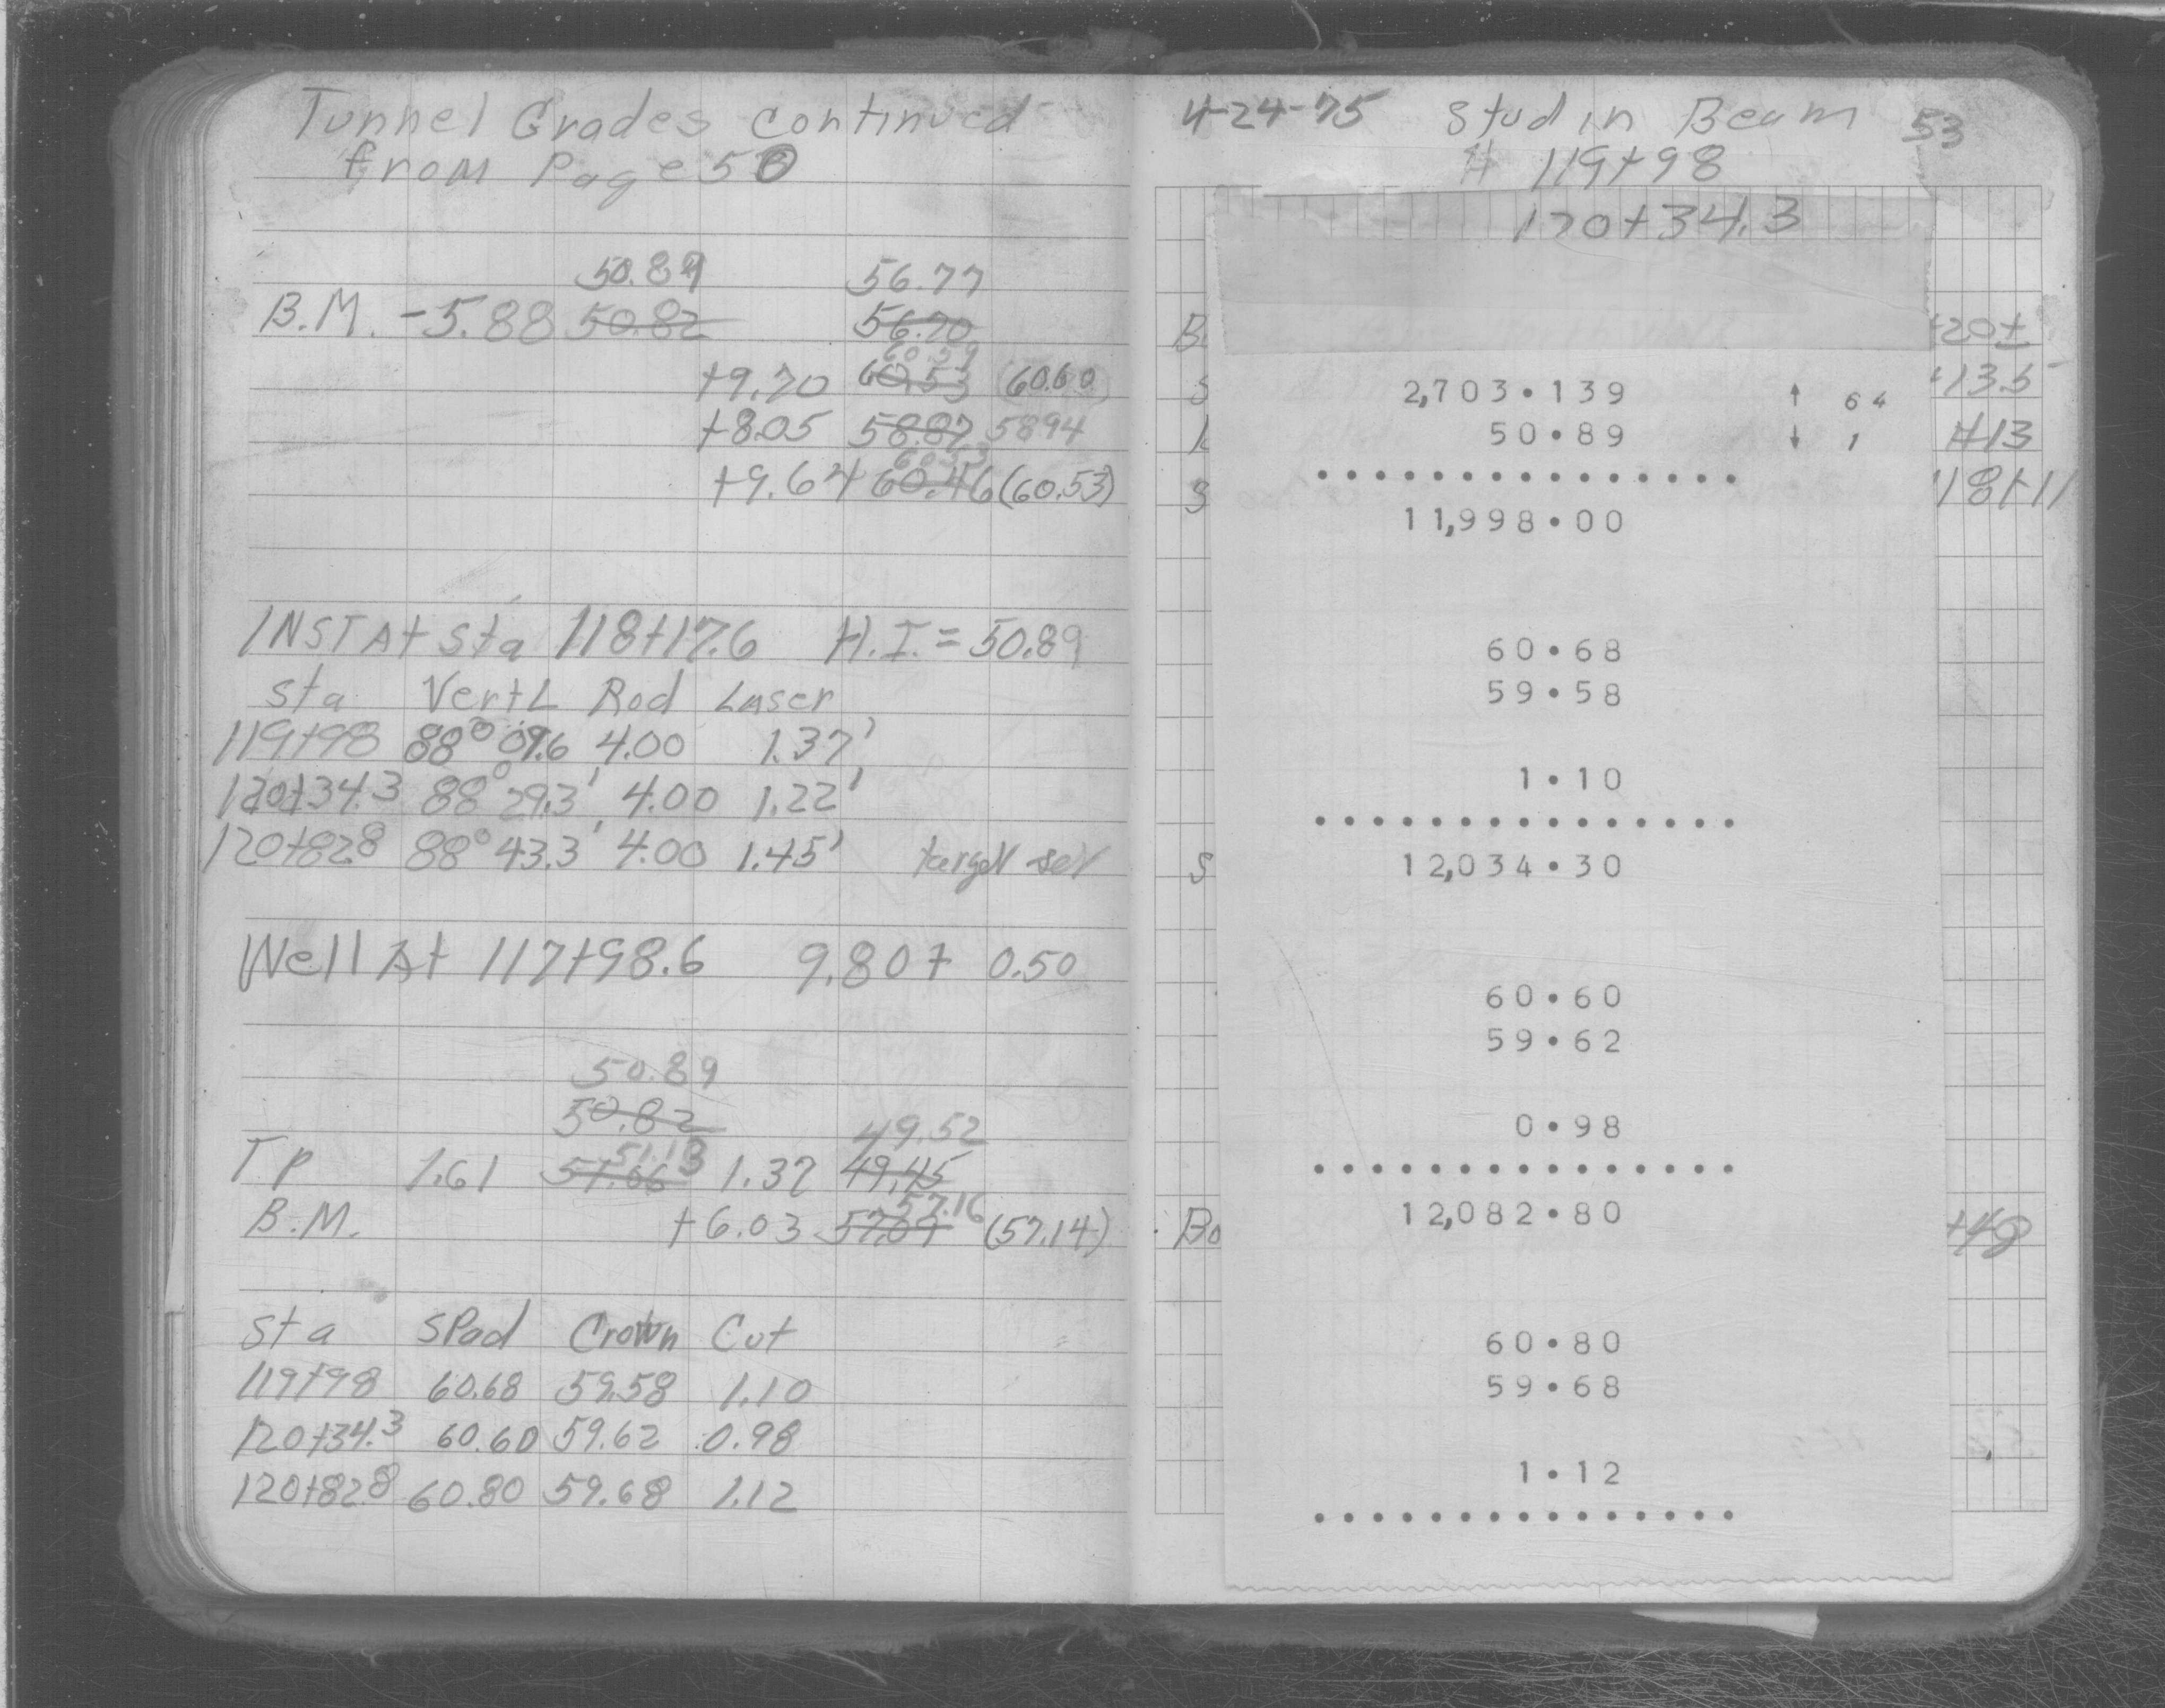 Tunnel Grades Continued
from Page 50
50.89 56.77
B.M. -5.88 50.82 56.70
60.59
+9.70 60.53 (60.60)
+8.05 58.87 58.94
60.53
+9.64 60.46 (60.53)
INST At Sta 118+17.6 H.I. = 50.89
Sta Vert L Rod Laser
119+98 88° 09.6 4.00 1.37'
120+34.3 88° 29.3' 4.00 1.22'
120+82.8 88° 43.3' 4.00 1.45' target set
Well At 117+98.6 9.80+ 0.50
50.89
50.82 49.52
51.13
TP 1.61 51.06 1.37 49.45
57.16
B.M. +6.03 57.09 (57.14)
Sta SPad Crown Cut
119+98 60.68 59.58 1.10
120+34.3 60.60 59.62 0.98
120+82.8 60.80 59.68 1.12
4-24-75 Stud in Beam 53
119+98
120+34.3
B +20±
S +13.5
+13
S 118+11
S
Bo +48
2,703.139 ↑ 64
50.89 ↓ 1
11,998.00
60.68
59.58
1.10
12,034.30
60.60
59.62
0.98
12,082.80
60.80
59.68
1.12